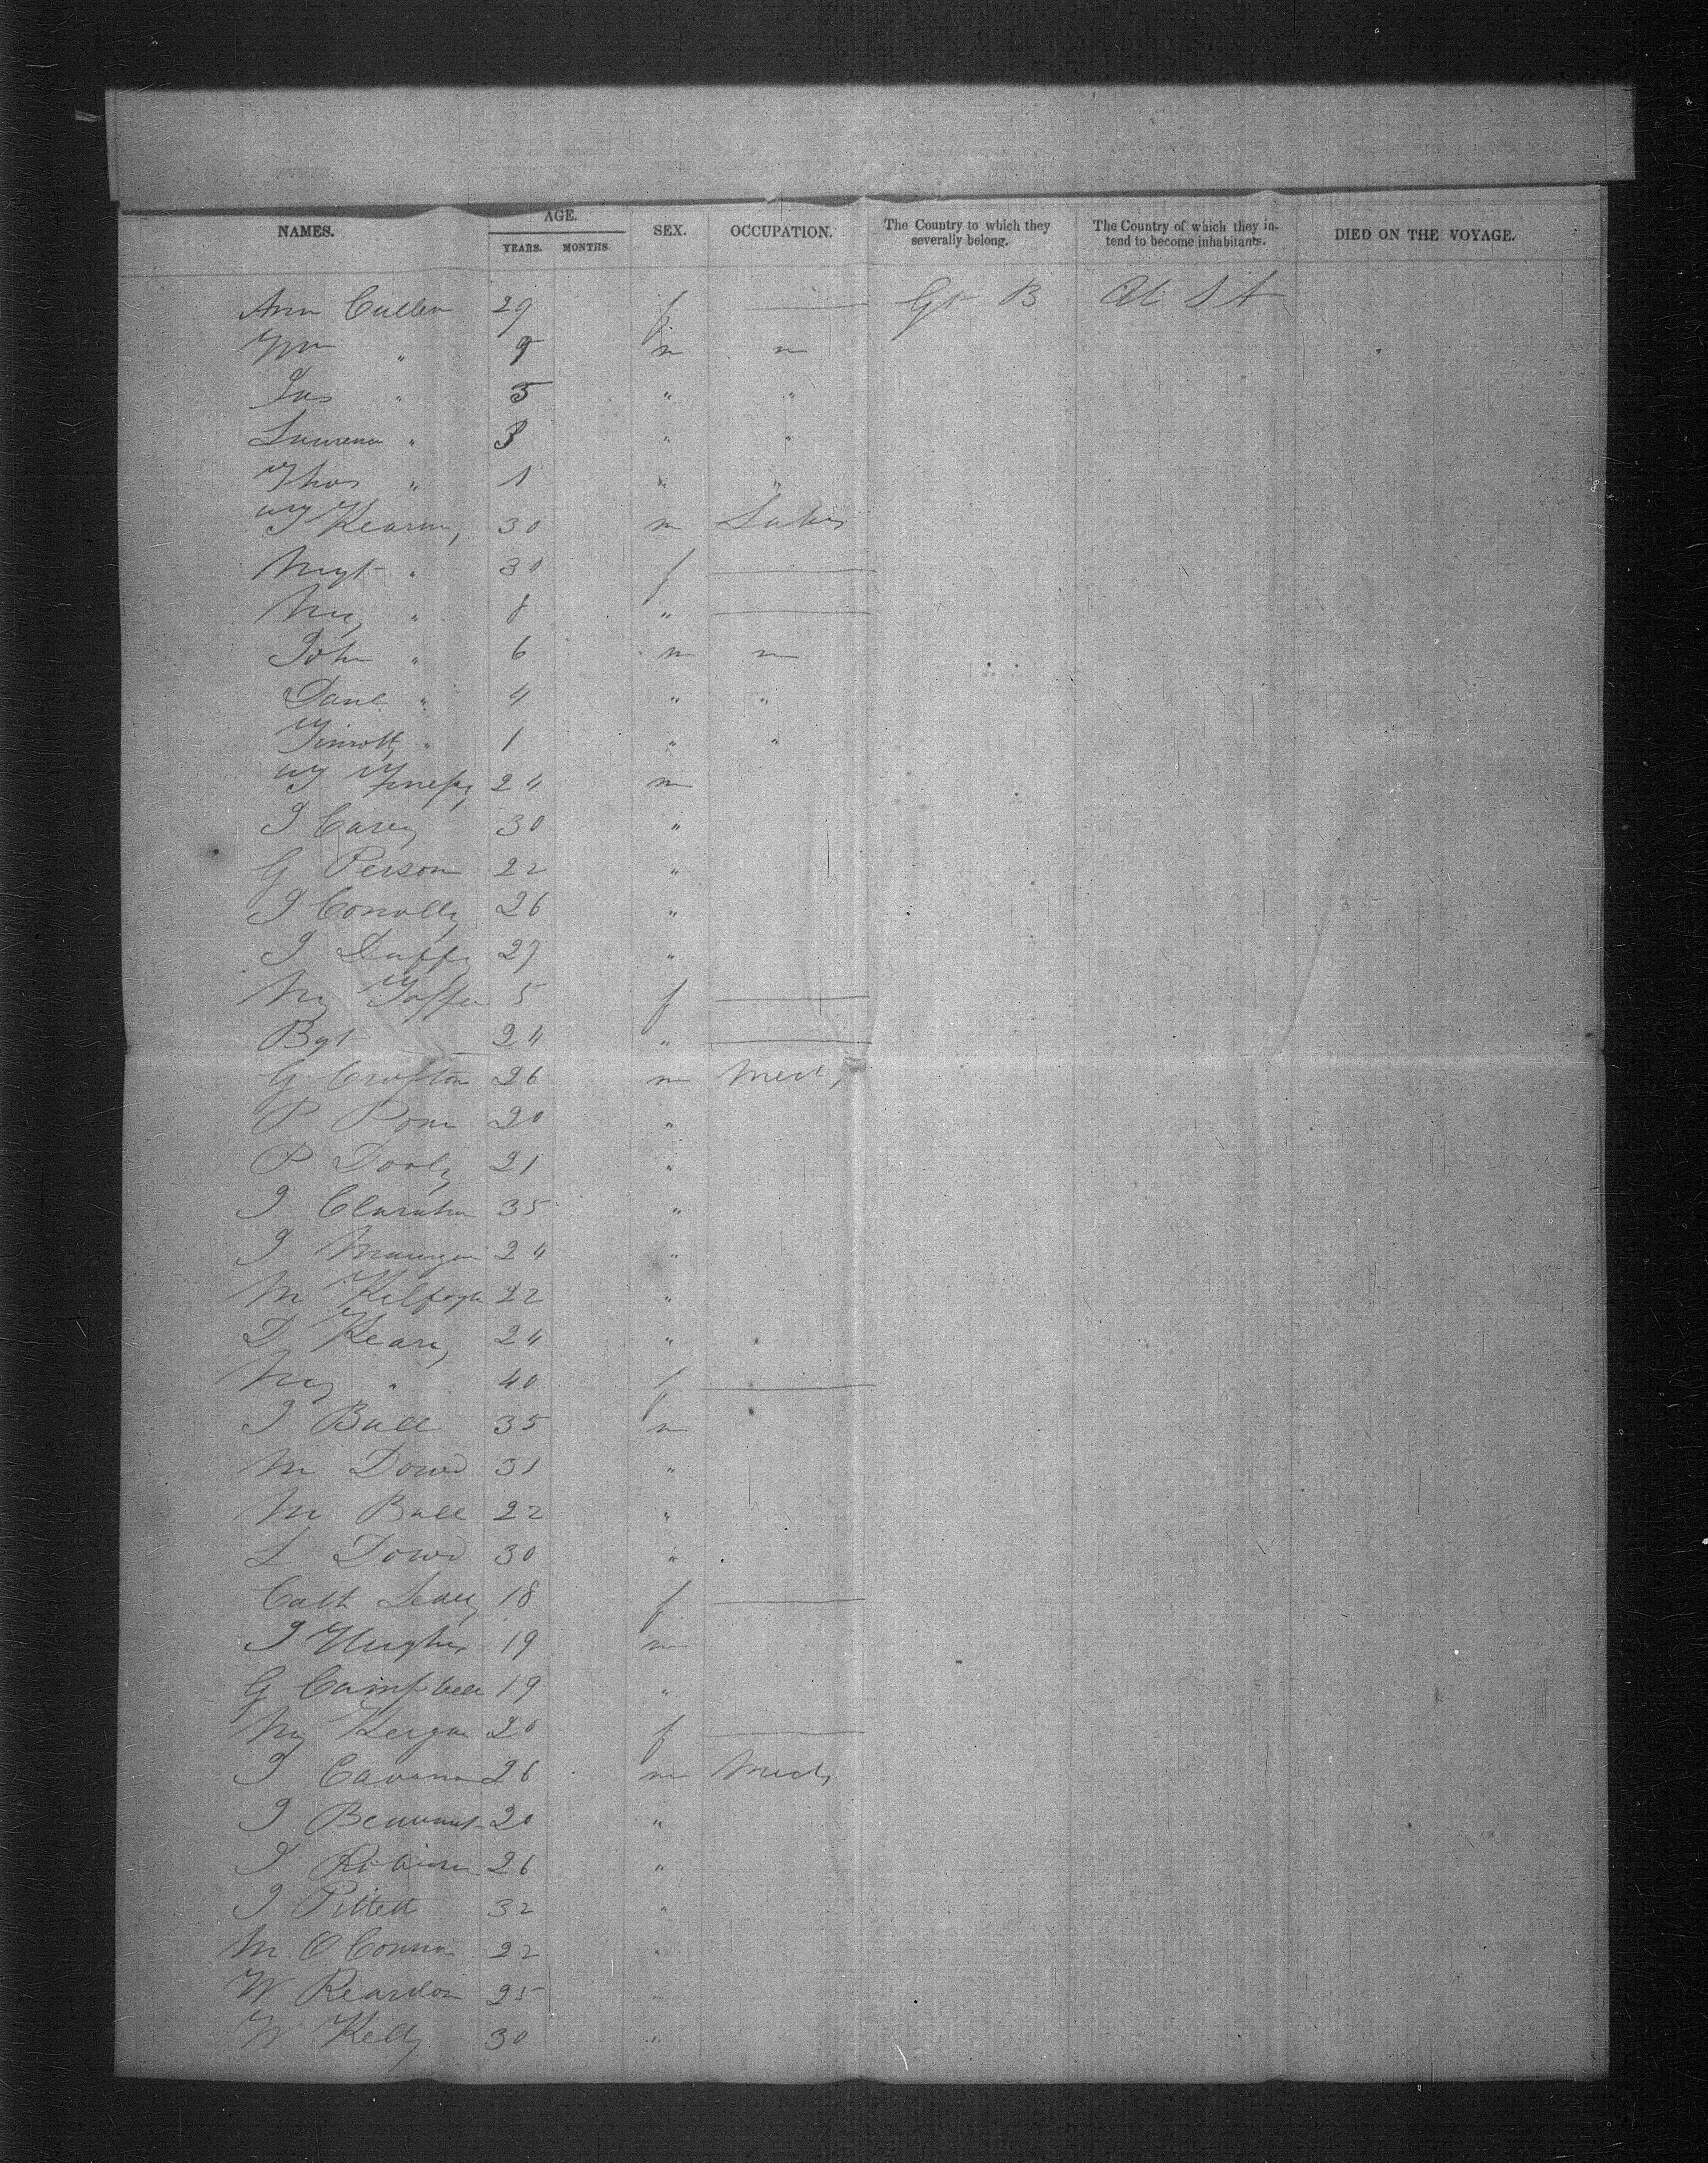 NAMES. AGE. YEARS. MONTHS. SEX. OCCUPATION. The Country to which they severally belong. The Country of which they intend to become inhabitants. DIED ON THE VOYAGE.
Ann Cullen 29 f Gt B U S A
Wm " 9 m m
Jas " 5 " "
Laurence " 3 " "
Thos " 1 " "
Kearny 30 m Labr
Mgt " 30 f
My " 8 "
John " 6 m m
Danl " 4 " "
Timothy " 1 " "
24 m
J Carey 30 "
G Person 22 "
J Conolly 26 "
J Duffy 27 "
My 5 f
Bgt 24 "
G Crofton 26 m Mech
P 20 "
P Dooly 21 "
J 35 "
J 24 "
M 22 "
D Keary 24 "
My " 40 f
J Ball 35 m
M Dowd 31 "
M Ball 22 "
L Dowd 30 "
Cath Leary 18 f
J Hughes 19 m
G Campbell 19 "
My 20 f
J 26 m Mech
J Beaumont 20 "
J Robinson 26 "
J Pittett 32 "
M O Connor 22 "
W Reardon 25 "
W Kelly 30 "